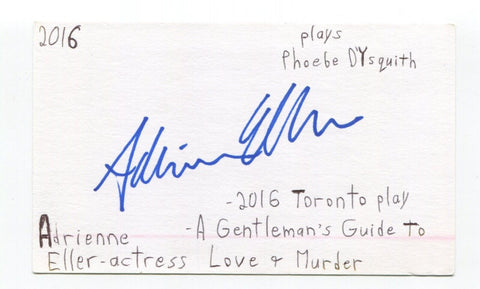 2016
plays
Phoebe D'Ysquith
Adrienne Eller
-2016 Toronto play
-A Gentleman's Guide To
Love & Murder
Adrienne
Eller-actress